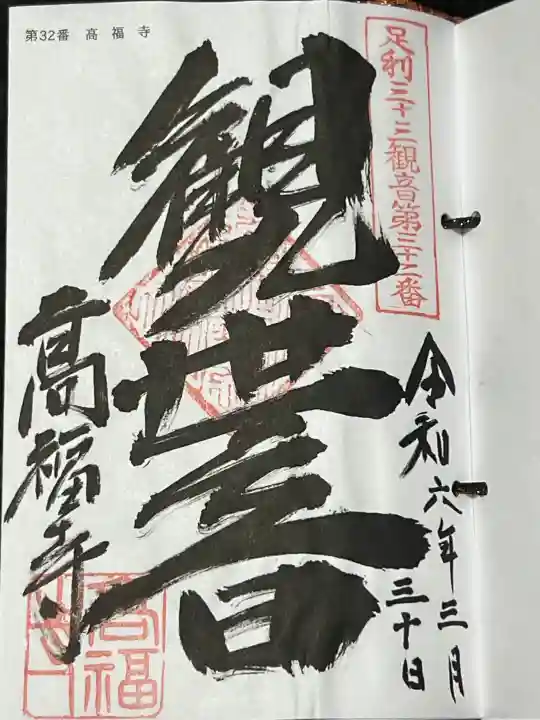 第32番 高福寺
足利三十三観音第三十二番
令和六年三月
三十日
観世音
高福寺
高福